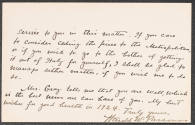 service to you in this matter. If you care
to consider taking the press to the Metropolitan
or if you wish to go to the bother of getting
it out of Italy for yourself, I shall be glad to
manage either matter, if you wish me to do
so.
Mrs. Grey tells me that you are well, which
is the best news we can have of you. My best
wishes for good health in 192
Truly yours,